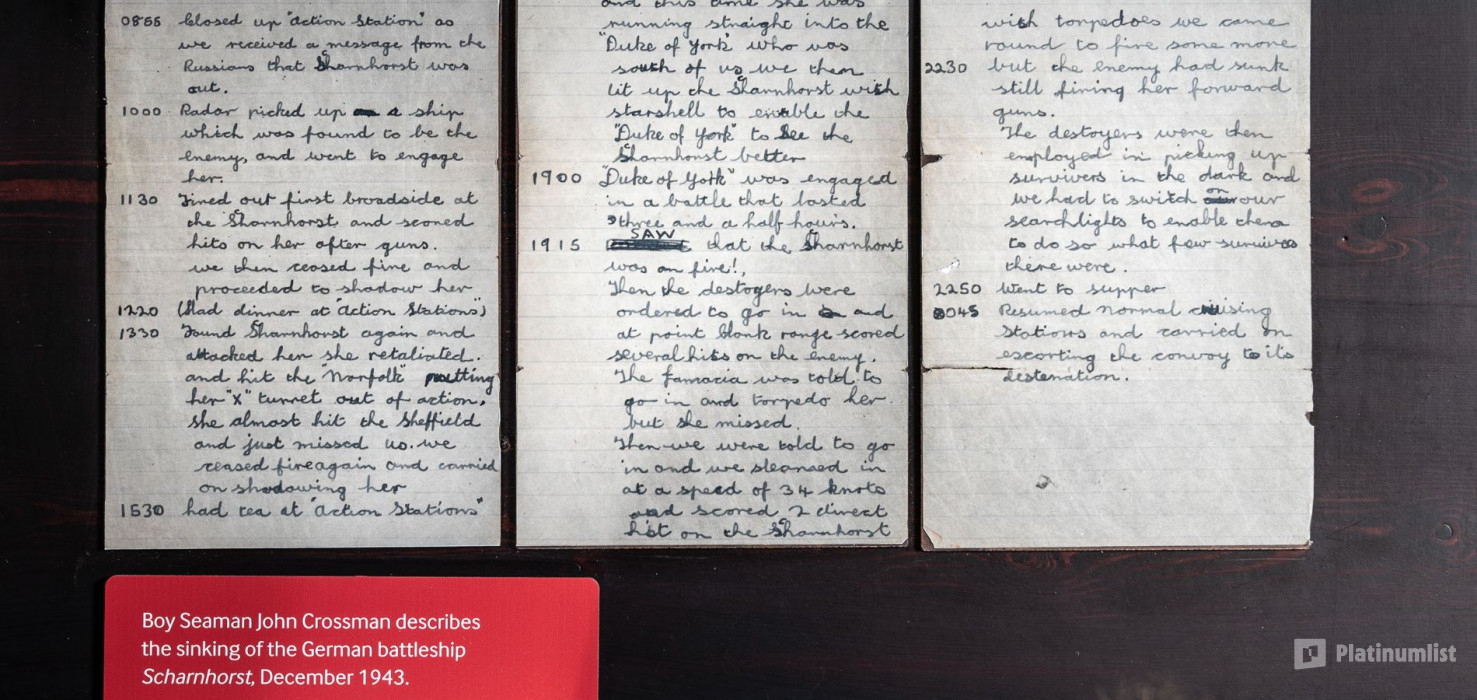 0855 Closed up "action Station" as
we received a message from the
Russians that Scharnhorst was
out.
1000 Radar picked up a ship
which was found to be the
enemy, and went to engage
her.
1130 Fired out first broadside at
the Scharnhorst and scored
hits on her after guns.
we then ceased fire and
proceeded to shadow her
1220 (Had dinner at "Action Stations")
1330 Found Scharnhorst again and
attacked her she retaliated.
and hit the "Norfolk" putting
her "X" turret out of action.
She almost hit the Sheffield
and just missed us. we
ceased fire again and carried
on shadowing her
1530 had tea at "Action Stations"
and this time she was
running straight into the
"Duke of York" who was
south of us we then
lit up the Scharnhorst with
starshell to enable the
"Duke of York" to See the
Scharnhorst better
1900 "Duke of York" was engaged
in a battle that lasted
three and a half hours.
1915 SAW that the Scharnhorst
was on fire!,
Then the destoyers were
ordered to go in and
at point blank range scored
several hits on the enemy.
The Jamacia was told to
go in and torpedo her.
but she missed.
Then we were told to go
in and we steamed in
at a speed of 34 knots
and scored 2 direct
hit on the Scharnhorst
with torpedoes we came
round to fire some more
2230 but the enemy had sunk
still firing her forward
guns.
The destoyers were then
employed in picking up
survivors in the dark and
we had to switch on our
searchlights to enable them
to do so what few survivors
there were.
2250 Went to supper
0045 Resumed normal cruising
Stations and carried on
escorting the convoy to it's
destenation.
Boy Seaman John Crossman describes
the sinking of the German battleship
Scharnhorst, December 1943.
Platinumlist